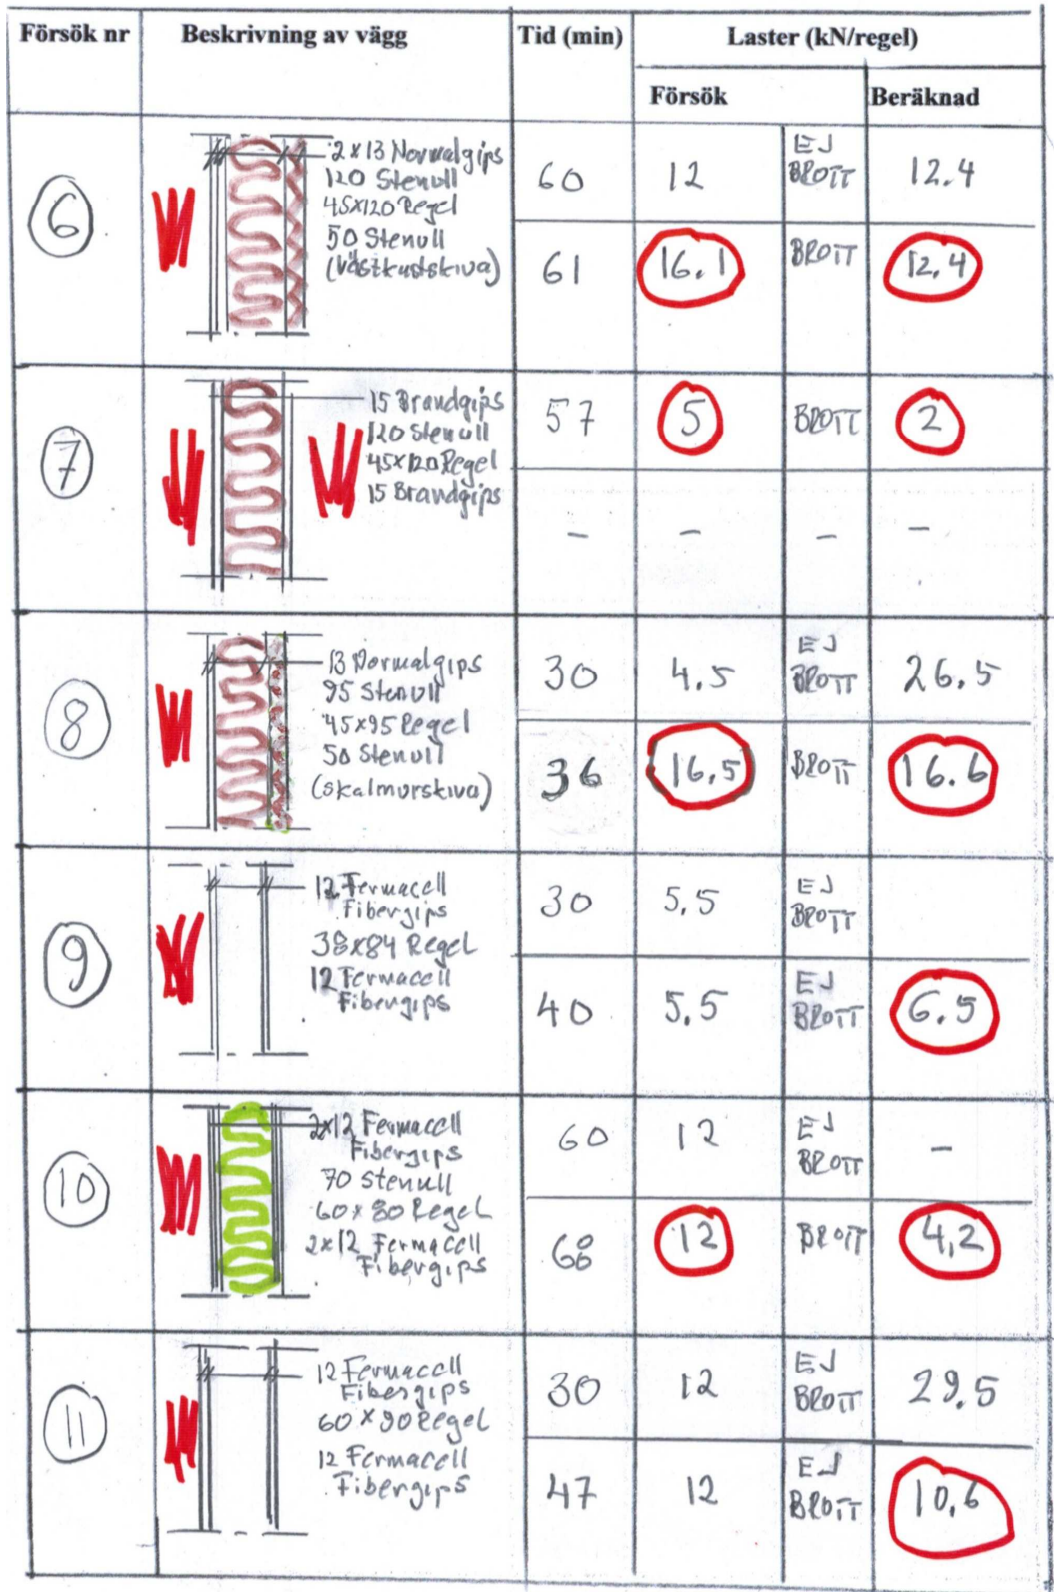 Försök nr Beskrivning av vägg Tid (min) Laster (kN/regel)
Försök Beräknad
6
2x13 Normalgips
120 Stenull
45x120 Regel
50 Stenull
(västkustskiva)
60 12 EJ BROTT 12.4
61 16.1 BROTT 12.4
7
15 Brandgips
120 Stenull
45x120 Regel
15 Brandgips
57 5 BROTT 2
- - - -
8
13 Normalgips
95 Stenull
45x95 Regel
50 Stenull
(skalmurskiva)
30 4.5 EJ BROTT 26.5
36 16.5 BROTT 16.6
9
12 Fermacell
Fibergips
38x84 Regel
12 Fermacell
Fibergips
30 5.5 EJ BROTT
40 5.5 EJ BROTT 6.5
10
2x12 Fermacell
Fibergips
70 Stenull
60x80 Regel
2x12 Fermacell
Fibergips
60 12 EJ BROTT -
12 BROTT 4,2
11
12 Fermacell
Fibergips
60x90 Regel
12 Fermacell
Fibergips
30 12 EJ BROTT 29.5
47 12 EJ BROTT 10,6